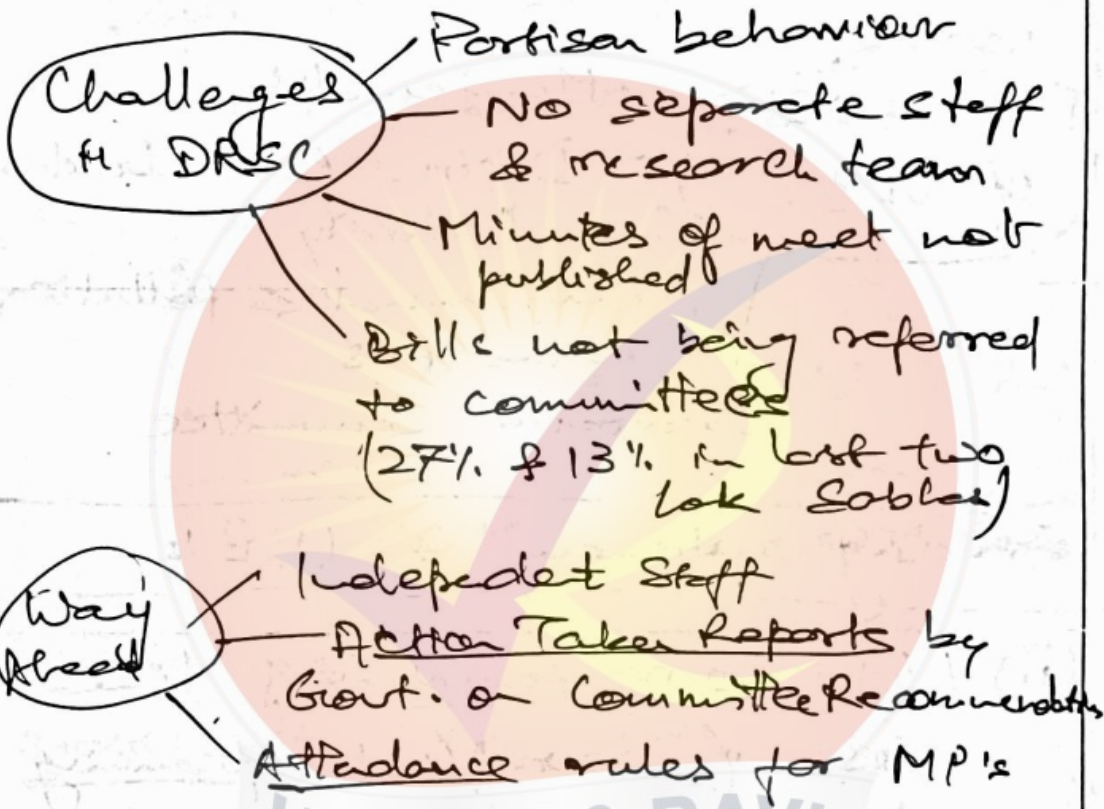 Partisan behaviour
Challenges
to DRSC
No separate staff
& research team
Minutes of meet not
published
Bills not being referred
to committees
(27% & 13% in last two
Lok Sabhas)
Way
Ahead
Independent Staff
Action Taken Reports by
Govt. on Committee Recommendations
Attendance rules for MP's